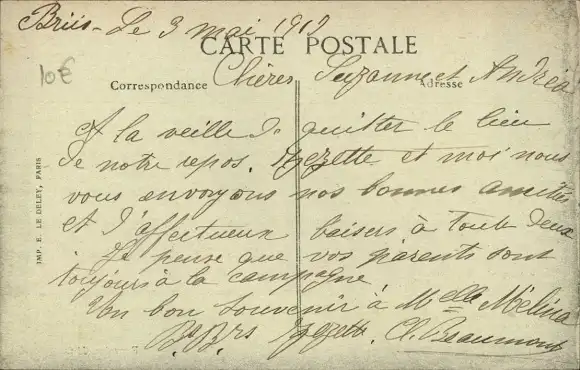 Briis - Le 3 mai 1912
CARTE POSTALE
10€
Correspondance
Adresse
Chères Suzanne et Andréa
A la veille de quitter le lieu
de notre repos. Zezette et moi nous
vous envoyons nos bonnes amitiés
et d'affectueux baisers à toute deux
Je pense que vos parents sont
toujours à la campagne
Un bon souvenir à Melle Mélina
B.Brs A. Beaumont
IMP. E. LE DELEY, PARIS